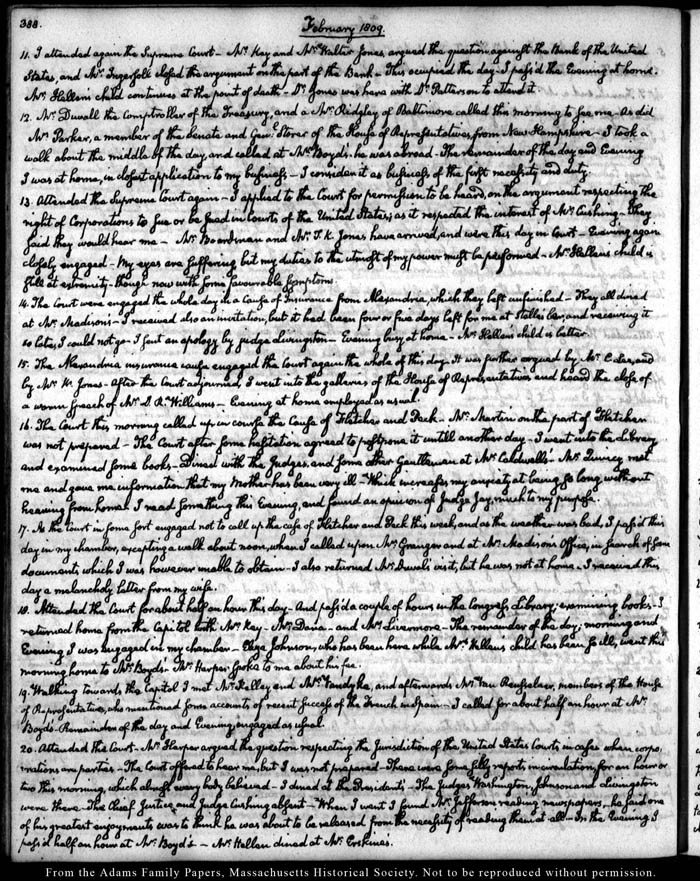 388.
February 1809.
11. I attended again the Supreme Court — Mr. Key and Mr. Walter Jones, argued the question against the Bank of the United
States, and Mr. Ingersoll closed the argument on the part of the Bank — This occupied the day — I pass'd the Evening at home.
Mr. Hellen's child continues at the point of death — Dr. Jones was here with Dr. Patterson to attend it.
12. Mr. Duvall the Comptroller of the Treasury, and a Mr. Ridgley of Baltimore called this morning to see me. As did
Mr. Parker, a member of the Senate and Genl. Storer of the House of Representatives, from New Hampshire — I took a
walk about the middle of the day, and called at Mr. Boyd's. he was abroad. The remainder of the day and Evening
I was at home, in closest application to my business — I consider it as business of the first necessity and duty.
13. Attended the Supreme Court again — I applied to the Court for permission to be heard, on the argument respecting the
right of Corporations to sue or be sued in courts of the United States; as it respected the interest of Mr. Cushing — They
said they would hear me — Mr. Boardman and Mr. T. K. Jones have arrived, and were this day in Court — Evening again
closely engaged — My eyes are suffering but my duties to the utmost of my power must be performed — Mr. Hellen's child is
still at extremity — though now with some favourable symptoms.
14. The Court were engaged the whole day in a Cause of Insurance from Alexandria, which they left unfinished — They all dined
at Mr. Madison's — I received also an invitation, but it had been four or five days left for me at Stelle's Bar, and receiving it
so late, I could not go — I sent an apology by judge Livingston — Evening busy at home — Mr. Hellen's child is better.
15. The Alexandria insurance cause engaged the Court again the whole of this day. It was further argued by Mr. E. Lee, and
by Mr. W. Jones — After the Court adjourned, I went into the galleries of the House of Representatives and heard the close of
a warm speech of Mr. D. R. Williams — Evening at home employed as usual.
16. The Court this morning called up in course the Cause of Fletcher and Peck — Mr. Martin on the part of Fletcher
was not prepared — The Court after some hesitation agreed to postpone it untill another day — I went into the Library
and examined some books — Dined with the Judges, and some other Gentlemen at Mr. Caldwell's — Mr. Quincy met
me and gave me information that my Mother has been very ill — Which increases my anxiety at being so long without
hearing from home. I read something this Evening, and found an opinion of Judge Jay, much to my purpose.
17. As the Court in some sort engaged not to call up the case of Fletcher and Peck this week, and as the weather was bad, I pass'd this
day in my chamber, excepting a walk about noon, when I called upon Mr. Granger and at Mr. Madison's Office, in search of some
documents which I was however unable to obtain — I also returned Mr. Duval's visit, but he was not at home. I received this
day a melancholy letter from my wife.
18. Attended the Court for about half an hour this day — And pass'd a couple of hours in the Congress Library, examining books — I
returned home from the Capitol with Mr. Key — Mr. Dana — and Mr. Livermore — The remainder of the day, morning and
Evening I was engaged in my chamber — Eliza Johnson, who has been here while Mr. Hellen's child has been so ill, went this
morning home to Mr. Boyd's. Mr. Harper spoke to me about his fee.
19. Walking towards the Capitol I met Mr. Kelley and Mr. Vandyke, and afterwards Mr. Van Rensselaer, members of the House
of Representatives, who mentioned some accounts of recent success of the French in Spain — I called for about half an hour at Mr.
Boyd's. Remainder of the day and Evening, engaged as usual.
20. Attended the Court — Mr. Harper argued the question respecting the Jurisdiction of the United States Courts in cases where corpo-
rations are parties — The Court offered to hear me, but I was not prepared — There were some silly reports in circulation for an hour or
two this morning, which almost every body believed — I dined at the President's — The Judges Washington, Johnson and Livingston
were there. The Chief Justice, and Judge Cushing absent — When I went I found Mr. Jefferson reading newspapers, he said one
of his greatest enjoyments was to think he was about to be released from the necessity of reading them at all — In the Evening, I
pass'd half an hour at Mr. Boyd's. — Mr. Hellen dined at Mr. Erskine's.
From the Adams Family Papers, Massachusetts Historical Society. Not to be reproduced without permission.